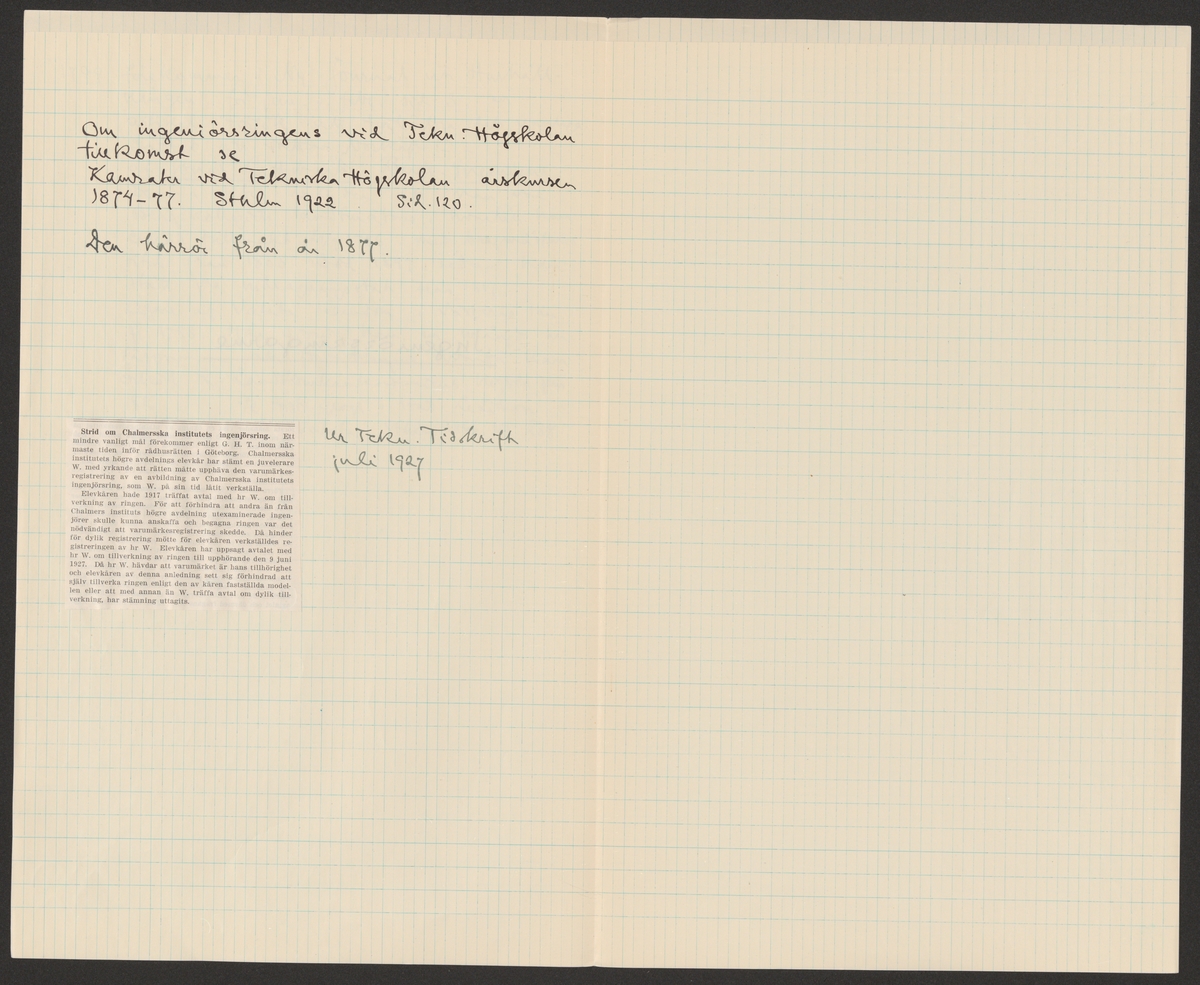 Om ingeniörsringens vid Tekn. Högskolan
tillkomst se
Kamrater vid Tekniska Högskolan årskursen
1874–77. Sthlm 1922 Sid. 120.
Den härrör från år 1877.
Strid om Chalmersska institutets ingenjörsring. Ett
mindre vanligt mål förekommer enligt G. H. T. inom när-
maste tiden inför rådhusrätten i Göteborg. Chalmersska
institutets högre avdelnings elevkår har stämt en juvelerare
W. med yrkande att rätten måtte upphäva den varumärkes-
registrering av en avbildning av Chalmersska institutets
ingenjörsring, som W. på sin tid låtit verkställa.
Elevkåren hade 1917 träffat avtal med hr W. om till-
verkning av ringen. För att förhindra att andra än från
Chalmers instituts högre avdelning utexaminerade ingen-
jörer skulle kunna anskaffa och begagna ringen var det
nödvändigt att varumärkesregistrering skedde. Då hinder
för dylik registrering mötte för elevkåren verkställdes re-
gistreringen av hr W. Elevkåren har uppsagt avtalet med
hr W. om tillverkning av ringen till upphörande den 9 juni
1927. Då hr W. hävdar att varumärket är hans tillhörighet
och elevkåren av denna anledning sett sig förhindrad att
själv tillverka ringen enligt den av kåren fastställda model-
len eller att med annan än W. träffa avtal om dylik till-
verkning, har stämning uttagits.
Ur Tekn. Tidskrift
juli 1927